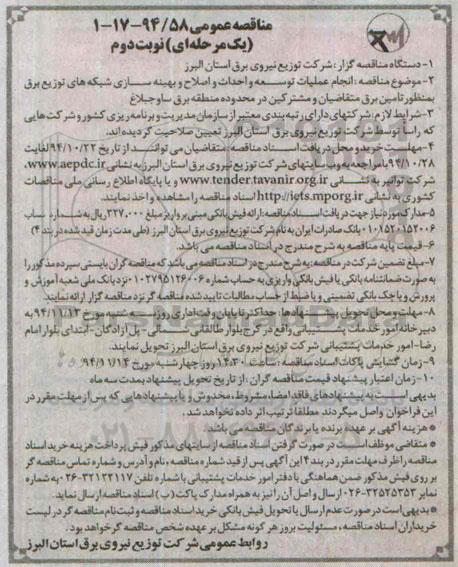 مناقصه عمومی ۹۴/۵۸-۱۷-۱
(یک مرحله ای) نوبت دوم
۱- دستگاه مناقصه گزار: شرکت توزیع نیروی برق استان البرز
۲- موضوع مناقصه: انجام عملیات توسعه و احداث و اصلاح و بهینه سازی شبکه های توزیع برق
بمنظور تامین برق متقاضیان و مشترکین در محدوده منطقه برق ساوجبلاغ
۳- شرایط لازم: شرکتهای دارای رتبه بندی معتبر از سازمان مدیریت و برنامه ریزی کشور و شرکت هایی
که راسا توسط شرکت توزیع نیروی برق استان البرز تعیین صلاحیت گردیده اند.
۴- مهلت خرید و محل دریافت اسناد مناقصه: متقاضیان می توانند از تاریخ ۹۴/۱۰/۲۲ لغایت
۹۴/۱۰/۲۸ با مراجعه به وب سایتهای شرکت توزیع نیروی برق استان البرز به نشانی www.aepdc.ir،
شرکت توانیر به نشانی www.tender.tavanir.org.ir و یا پایگاه اطلاع رسانی ملی مناقصات
کشوری به نشانی http://iets.mporg.ir اسناد مناقصه را مشاهده و اخذ نمایند.
۵- مدارک مورد نیاز جهت دریافت اسناد مناقصه: ارائه فیش بانکی مبنی بر واریز مبلغ ۳۲۷,۰۰۰ ریال به شماره حساب
۰۱۰۸۵۲۰۱۵۲۰۰۶ بانک صادرات ایران به نام شرکت توزیع نیروی برق استان البرز (طی مدت زمان قید شده در بند ۴)
۶- قیمت پایه مناقصه به شرح مندرج در اسناد مناقصه می باشد.
۷- مبلغ تضمین شرکت در مناقصه: به شرح مندرج در اسناد مناقصه می باشد که مناقصه گران بایستی سپرده مذکور را
به صورت ضمانتنامه بانکی یا فیش بانکی واریزی به حساب شماره ۰۱۰۲۷۹۵۱۲۶۰۰۶ نزد بانک ملی شعبه آموزش و
پرورش و یا چک بانکی تضمینی و یا ضبط از حساب مطالبات تایید شده مناقصه گر نزد مناقصه گزار ارائه نمایند.
۸- مهلت و محل تحویل پیشنهادها: حداکثر تا پایان وقت اداری روز سه شنبه مورخ ۹۴/۱۱/۱۳ به
دبیرخانه امور خدمات پشتیبانی واقع در کرج بلوار طالقانی شمالی- پل آزادگان- ابتدای بلوار امام
رضا- امور خدمات پشتیبانی شرکت توزیع نیروی برق استان البرز تحویل نمایند.
۹- زمان گشایش پاکات اسناد مناقصه: ساعت ۱۴:۳۰ روز چهارشنبه مورخ ۹۴/۱۱/۱۴
۱۰- زمان اعتبار پیشنهاد قیمت مناقصه گران: از تاریخ تحویل پیشنهاد بمدت سه ماه
بدیهی است به پیشنهادهای فاقد امضا، مشروط، مخدوش و یا پیشنهادهایی که پس از مهلت مقرر در
این فراخوان واصل میگردند مطلقا ترتیب اثر داده نخواهد شد.
* هزینه آگهی بر عهده برنده یا برندگان مناقصه می باشد
* متقاضی موظف است در صورت گرفتن اسناد مناقصه از سایتهای مذکور فیش پرداخت هزینه خرید اسناد
مناقصه را ظرف مهلت مقرر در بند ۴ این آگهی پس از قید شماره مناقصه، نام و آدرس و شماره تماس مناقصه گر
بر روی فیش مذکور ضمن هماهنگی با دفتر امور خدمات پشتیبانی با شماره تلفن ۳۲۱۲۲۱۱۷-۰۲۶ به شماره
نمابر ۳۲۵۲۵۳۵۳-۰۲۶ ارسال و اصل آن را نیز به همراه مدارک پاکت (ب) اسناد مناقصه ارسال نماید.
* بدیهی است در صورت عدم ارسال یا تحویل فیش بانکی خرید اسناد مناقصه و ثبت نام مناقصه گر در لیست
خریداران اسناد مناقصه، مسئولیت بروز هر گونه مشکل بر عهده شخص مناقصه گر خواهد بود.
روابط عمومی شرکت توزیع نیروی برق استان البرز